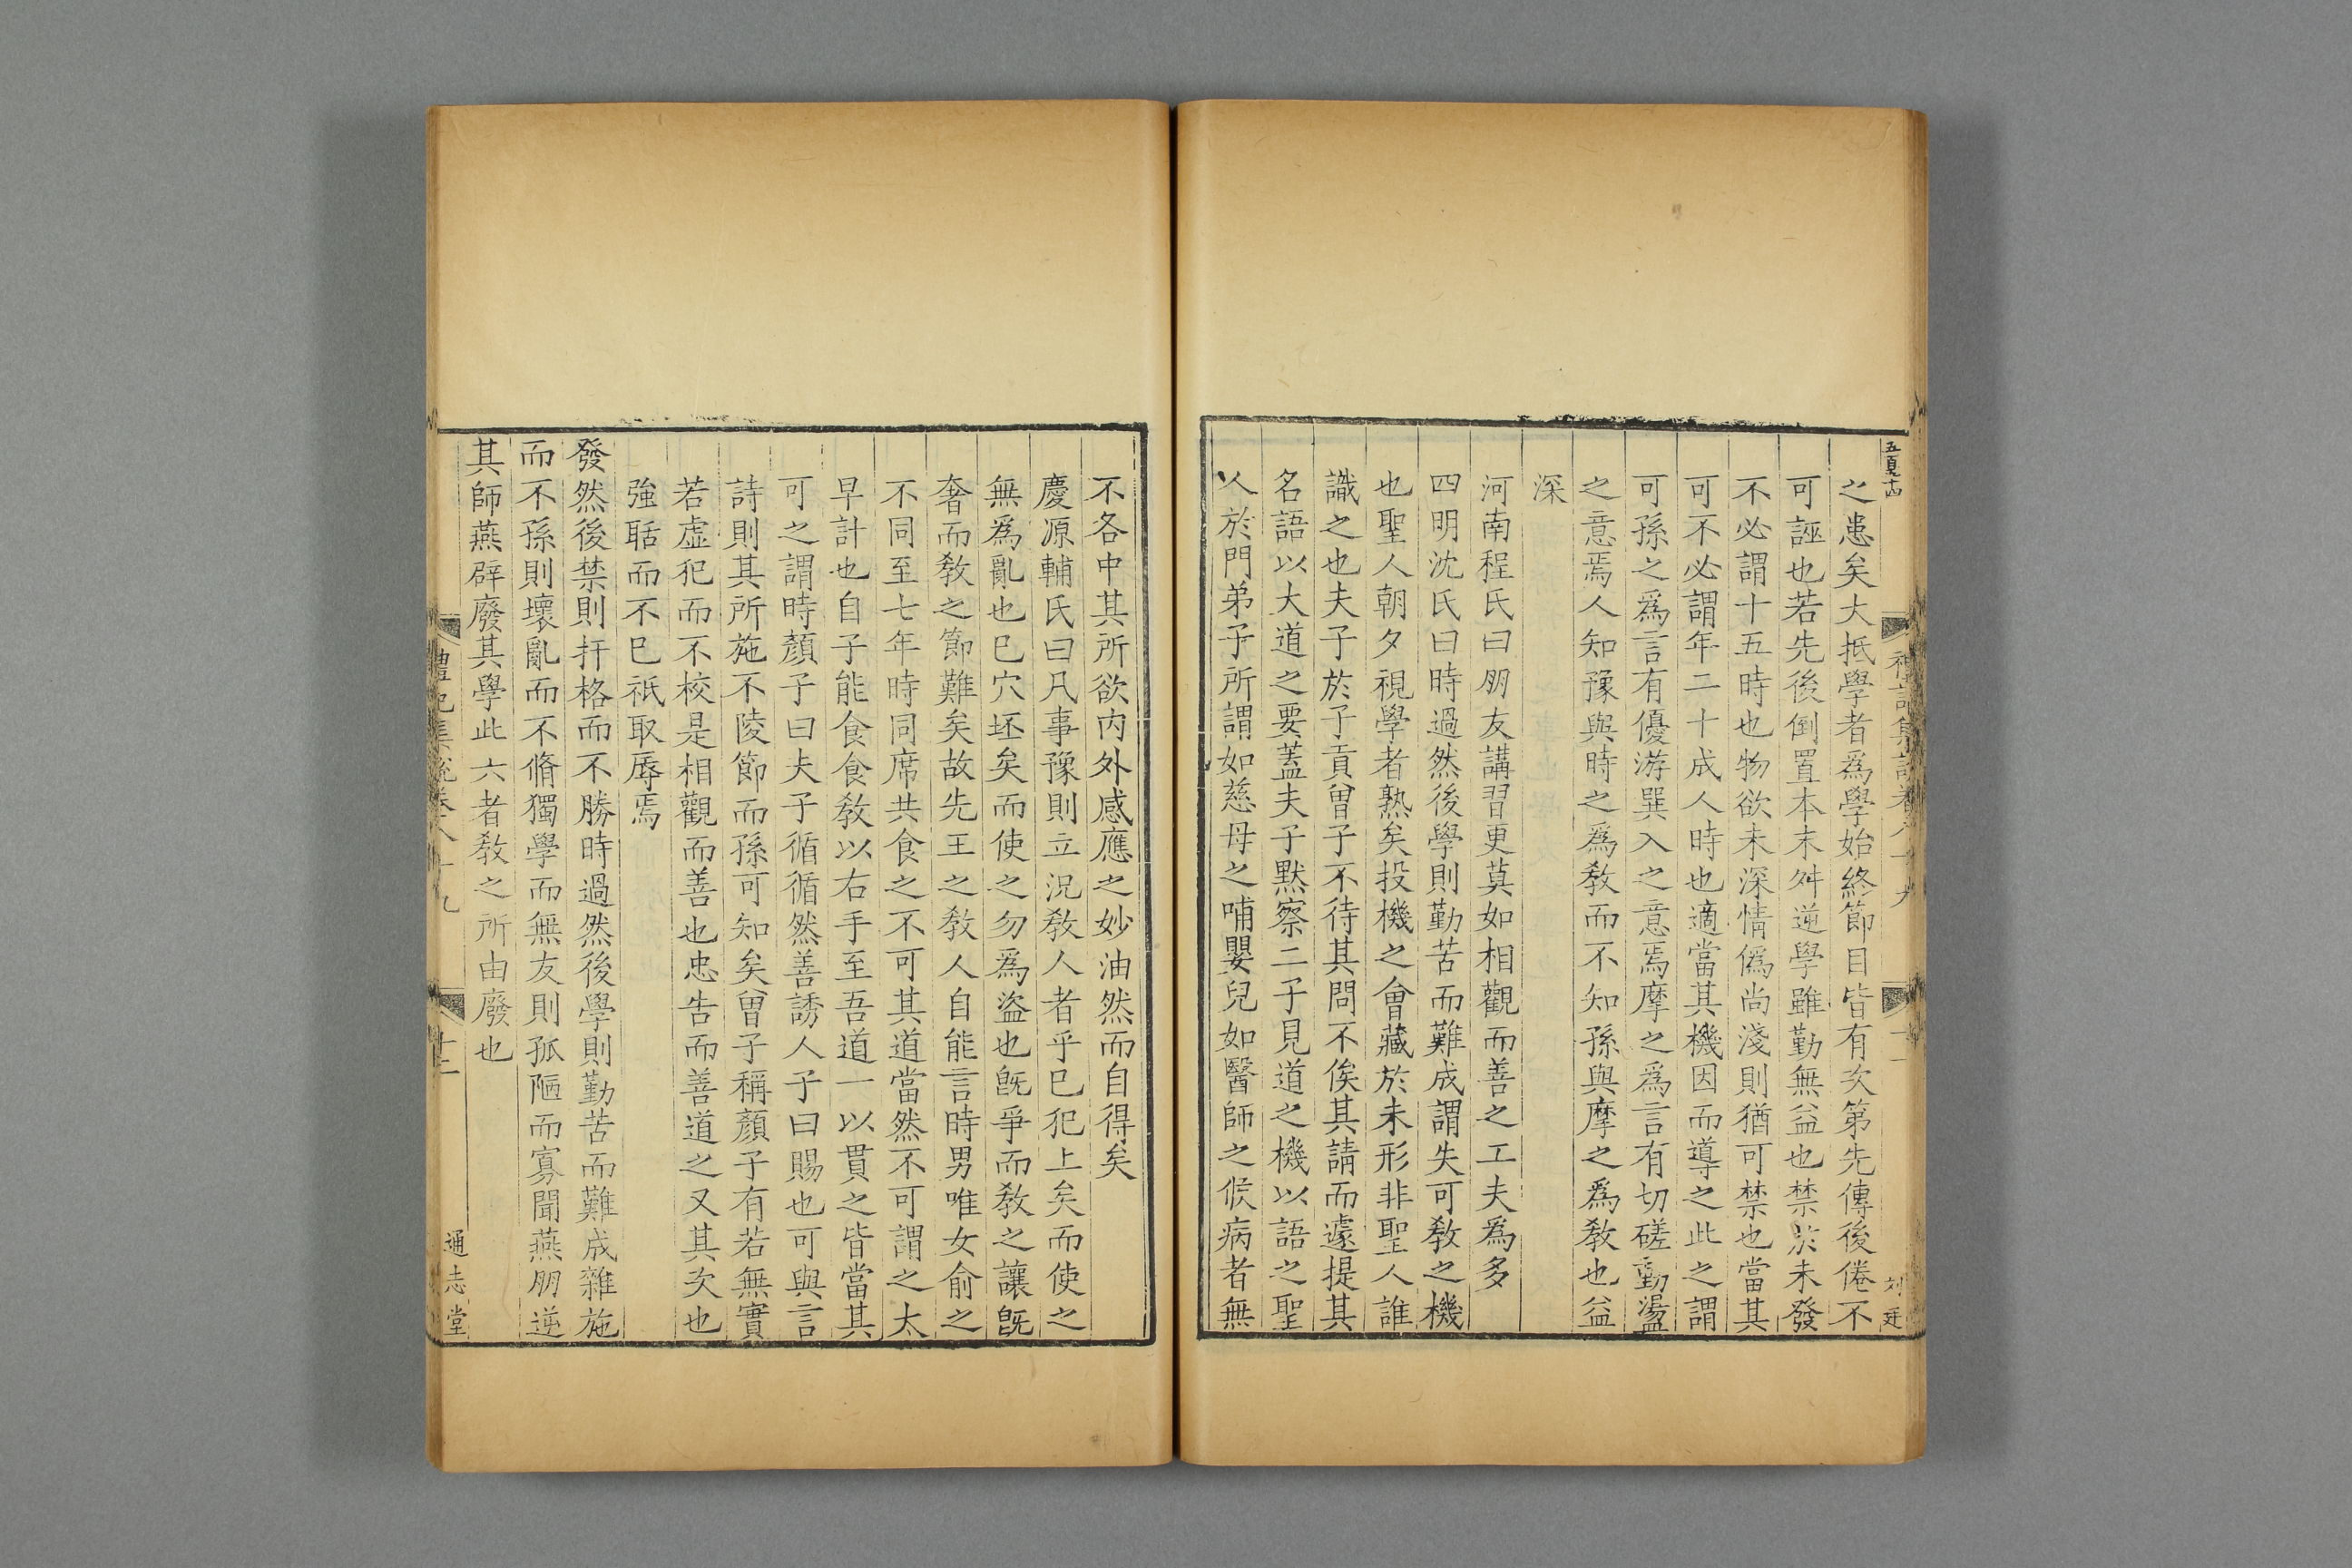 之患矣大抵學者爲學始終節目皆有次第先傳後倦不
可誣也若先後倒置本末舛逆學雖勤無益也禁於未發
不必謂十五時也物欲未深情僞尚淺則猶可禁也當其
可不必謂年二十成人時也適當其機因而導之此之謂
可孫之爲言有優游巽入之意焉摩之爲言有切磋動盪
之意焉人知豫與時之爲敎而不知孫與摩之爲敎也益
深
河南程氏曰朋友講習更莫如相觀而善之工夫爲多
四明沈氏曰時過然後學則勤苦而難成謂失可敎之機
也聖人朝夕視學者熟矣投機之會藏於未形非聖人誰
識之也夫子於子貢曾子不待其問不俟其請而遽提其
名語以大道之要蓋夫子默察二子見道之機以語之聖
人於門弟子所謂如慈母之哺嬰兒如醫師之候病者無
不各中其所欲內外感應之妙油然而自得矣
慶源輔氏曰凡事豫則立況敎人者乎巳犯上矣而使之
無爲亂也巳穴坯矣而使之勿爲盜也旣爭而敎之讓旣
奢而敎之節難矣故先王之敎人自能言時男唯女俞之
不同至七年時同席共食之不可其道當然不可謂之太
早計也自子能食食敎以右手至吾道一以貫之皆當其
可之謂時顏子曰夫子循循然善誘人子曰賜也可與言
詩則其所施不陵節而孫可知矣曾子稱顏子有若無實
若虛犯而不校是相觀而善也忠告而善道之又其次也
強聒而不巳祇取辱焉
發然後禁則扞格而不勝時過然後學則勤苦而難成雜施
而不孫則壞亂而不脩獨學而無友則孤陋而寡聞燕朋逆
其師燕辟廢其學此六者敎之所由廢也
禮記集說卷八十九
十二
通志堂